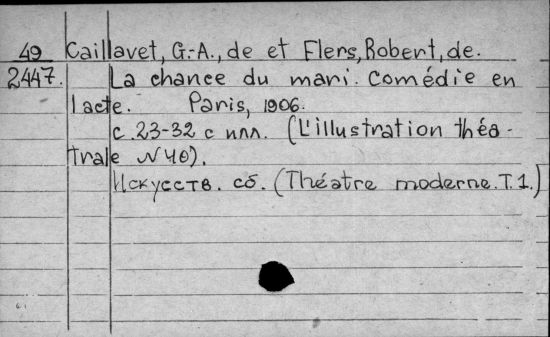 49 Caillavet, G.-A., de et Flers, Robert, de.
2447. La chance du mari. Comédie en
1 acte. Paris, 1906.
с. 23-32 с илл. (L'illustration théa-
trale N 40).
Искусств. сб. (Théatre moderne. T. 1.)